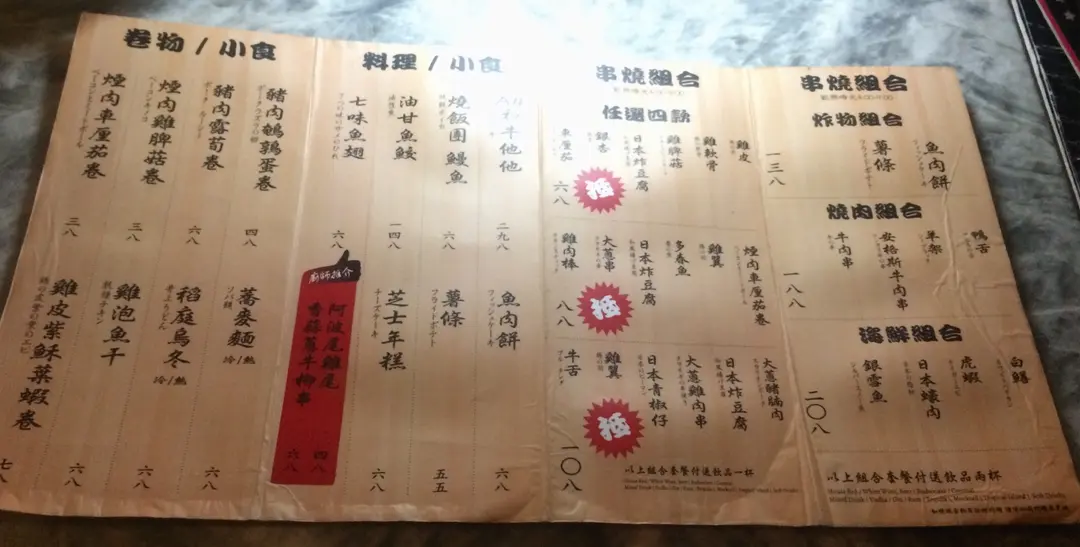 卷物 / 小食
豬肉鵪鶉蛋卷
四八
豬肉露荀卷
六八
煙肉雞脾菇卷
三八
煙肉車厘茄卷
三八
蕎麥麵 冷/熱
六八
稻庭烏冬 冷/熱
六八
雞泡魚干
六八
雞皮紫穌葉蝦卷
七八
料理 / 小食
牛他他
二九八
燒飯團鰻魚
六八
油甘魚鮫
一四八
七味魚翅
六八
魚肉餅
フィッシュケーキ
六八
薯條
フライドポテト
五五
芝士年糕
チーズケーキ
六八
廚師推介
阿波尾雞尾
四八
香蒜蔥牛柳串
六八
串燒組合
任選四款
雞皮
雞軟骨
雞脾菇
日本炸豆腐
銀杏
車厘茄
抵
六八
煙肉車厘茄卷
雞翼
多春魚
日本炸豆腐
大蔥串
雞肉棒
抵
八八
大蔥豬腩肉
日本炸豆腐
大蔥雞肉串
日本青椒仔
雞翼
牛舌
抵
一〇八
以上組合套餐付送飲品一杯
串燒組合
炸物組合
魚肉餅
フィッシュケーキ
薯條
フライドポテト
一三八
燒肉組合
鴨舌
羊架
安格斯牛肉串
牛肉串
一八八
海鮮組合
白鱔
虎蝦
日本蠔肉
銀雪魚
二〇八
以上組合套餐付送飲品兩杯